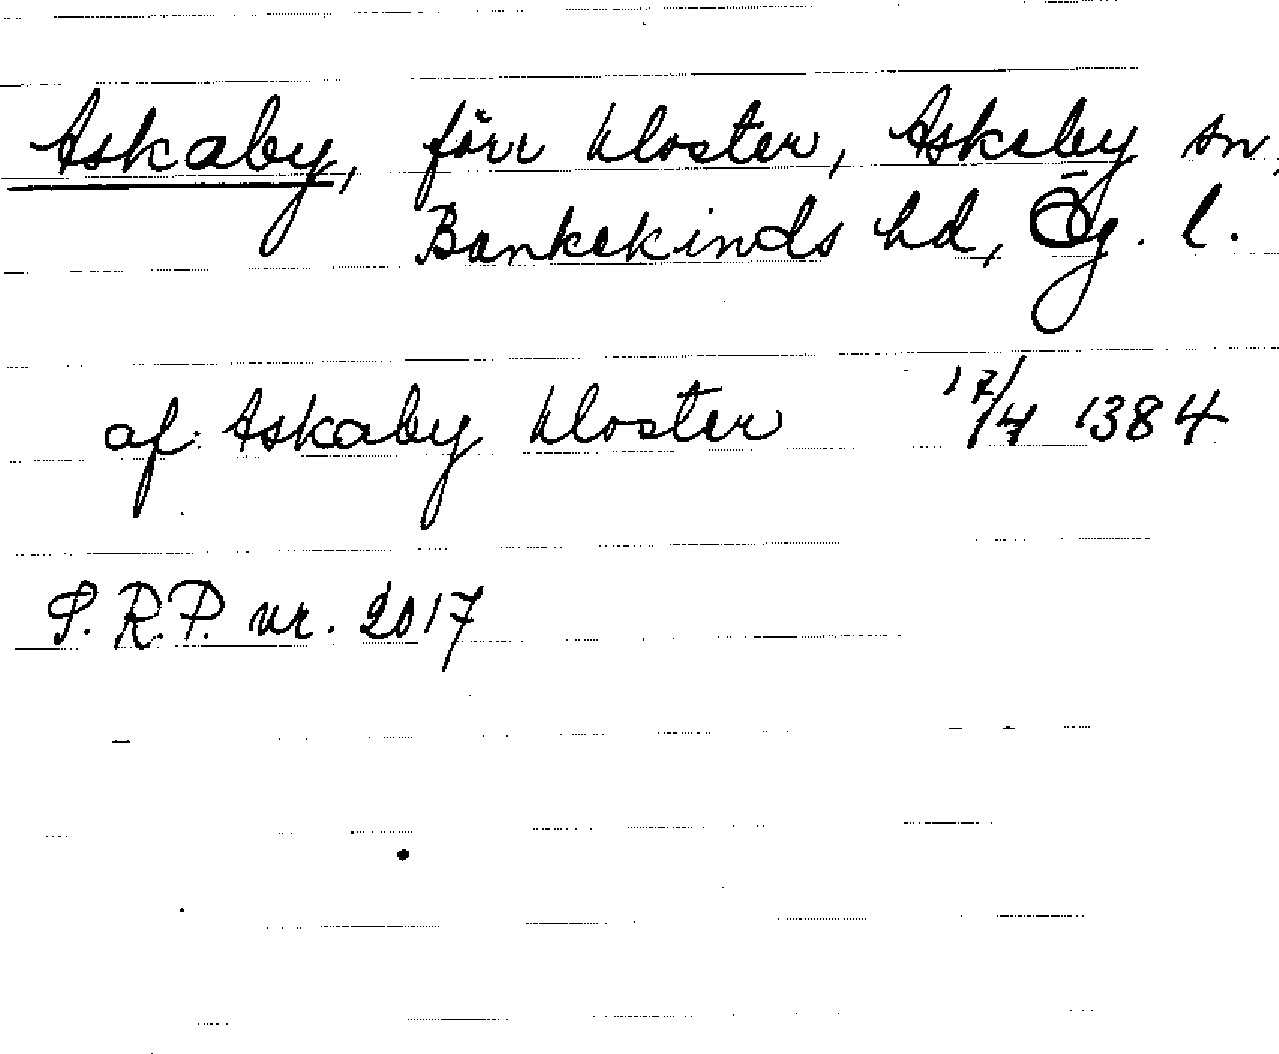 Askaby, förr kloster, Askeby sn,
Bankekinds hd, Ög. l.
af Askaby kloster 17/4 1384
S. R. P. nr. 2017